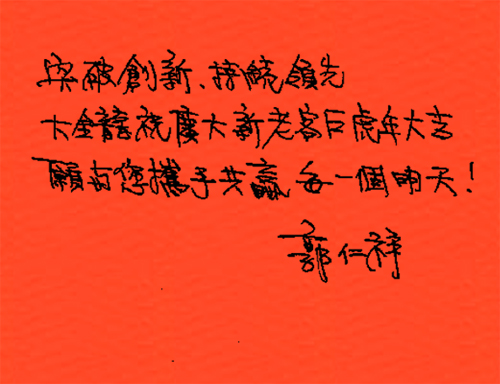 突破創新、持續領先
大全龍祝廣大新老客户虎年大吉
願与您攜手共贏每一個明天!
郭仁祥